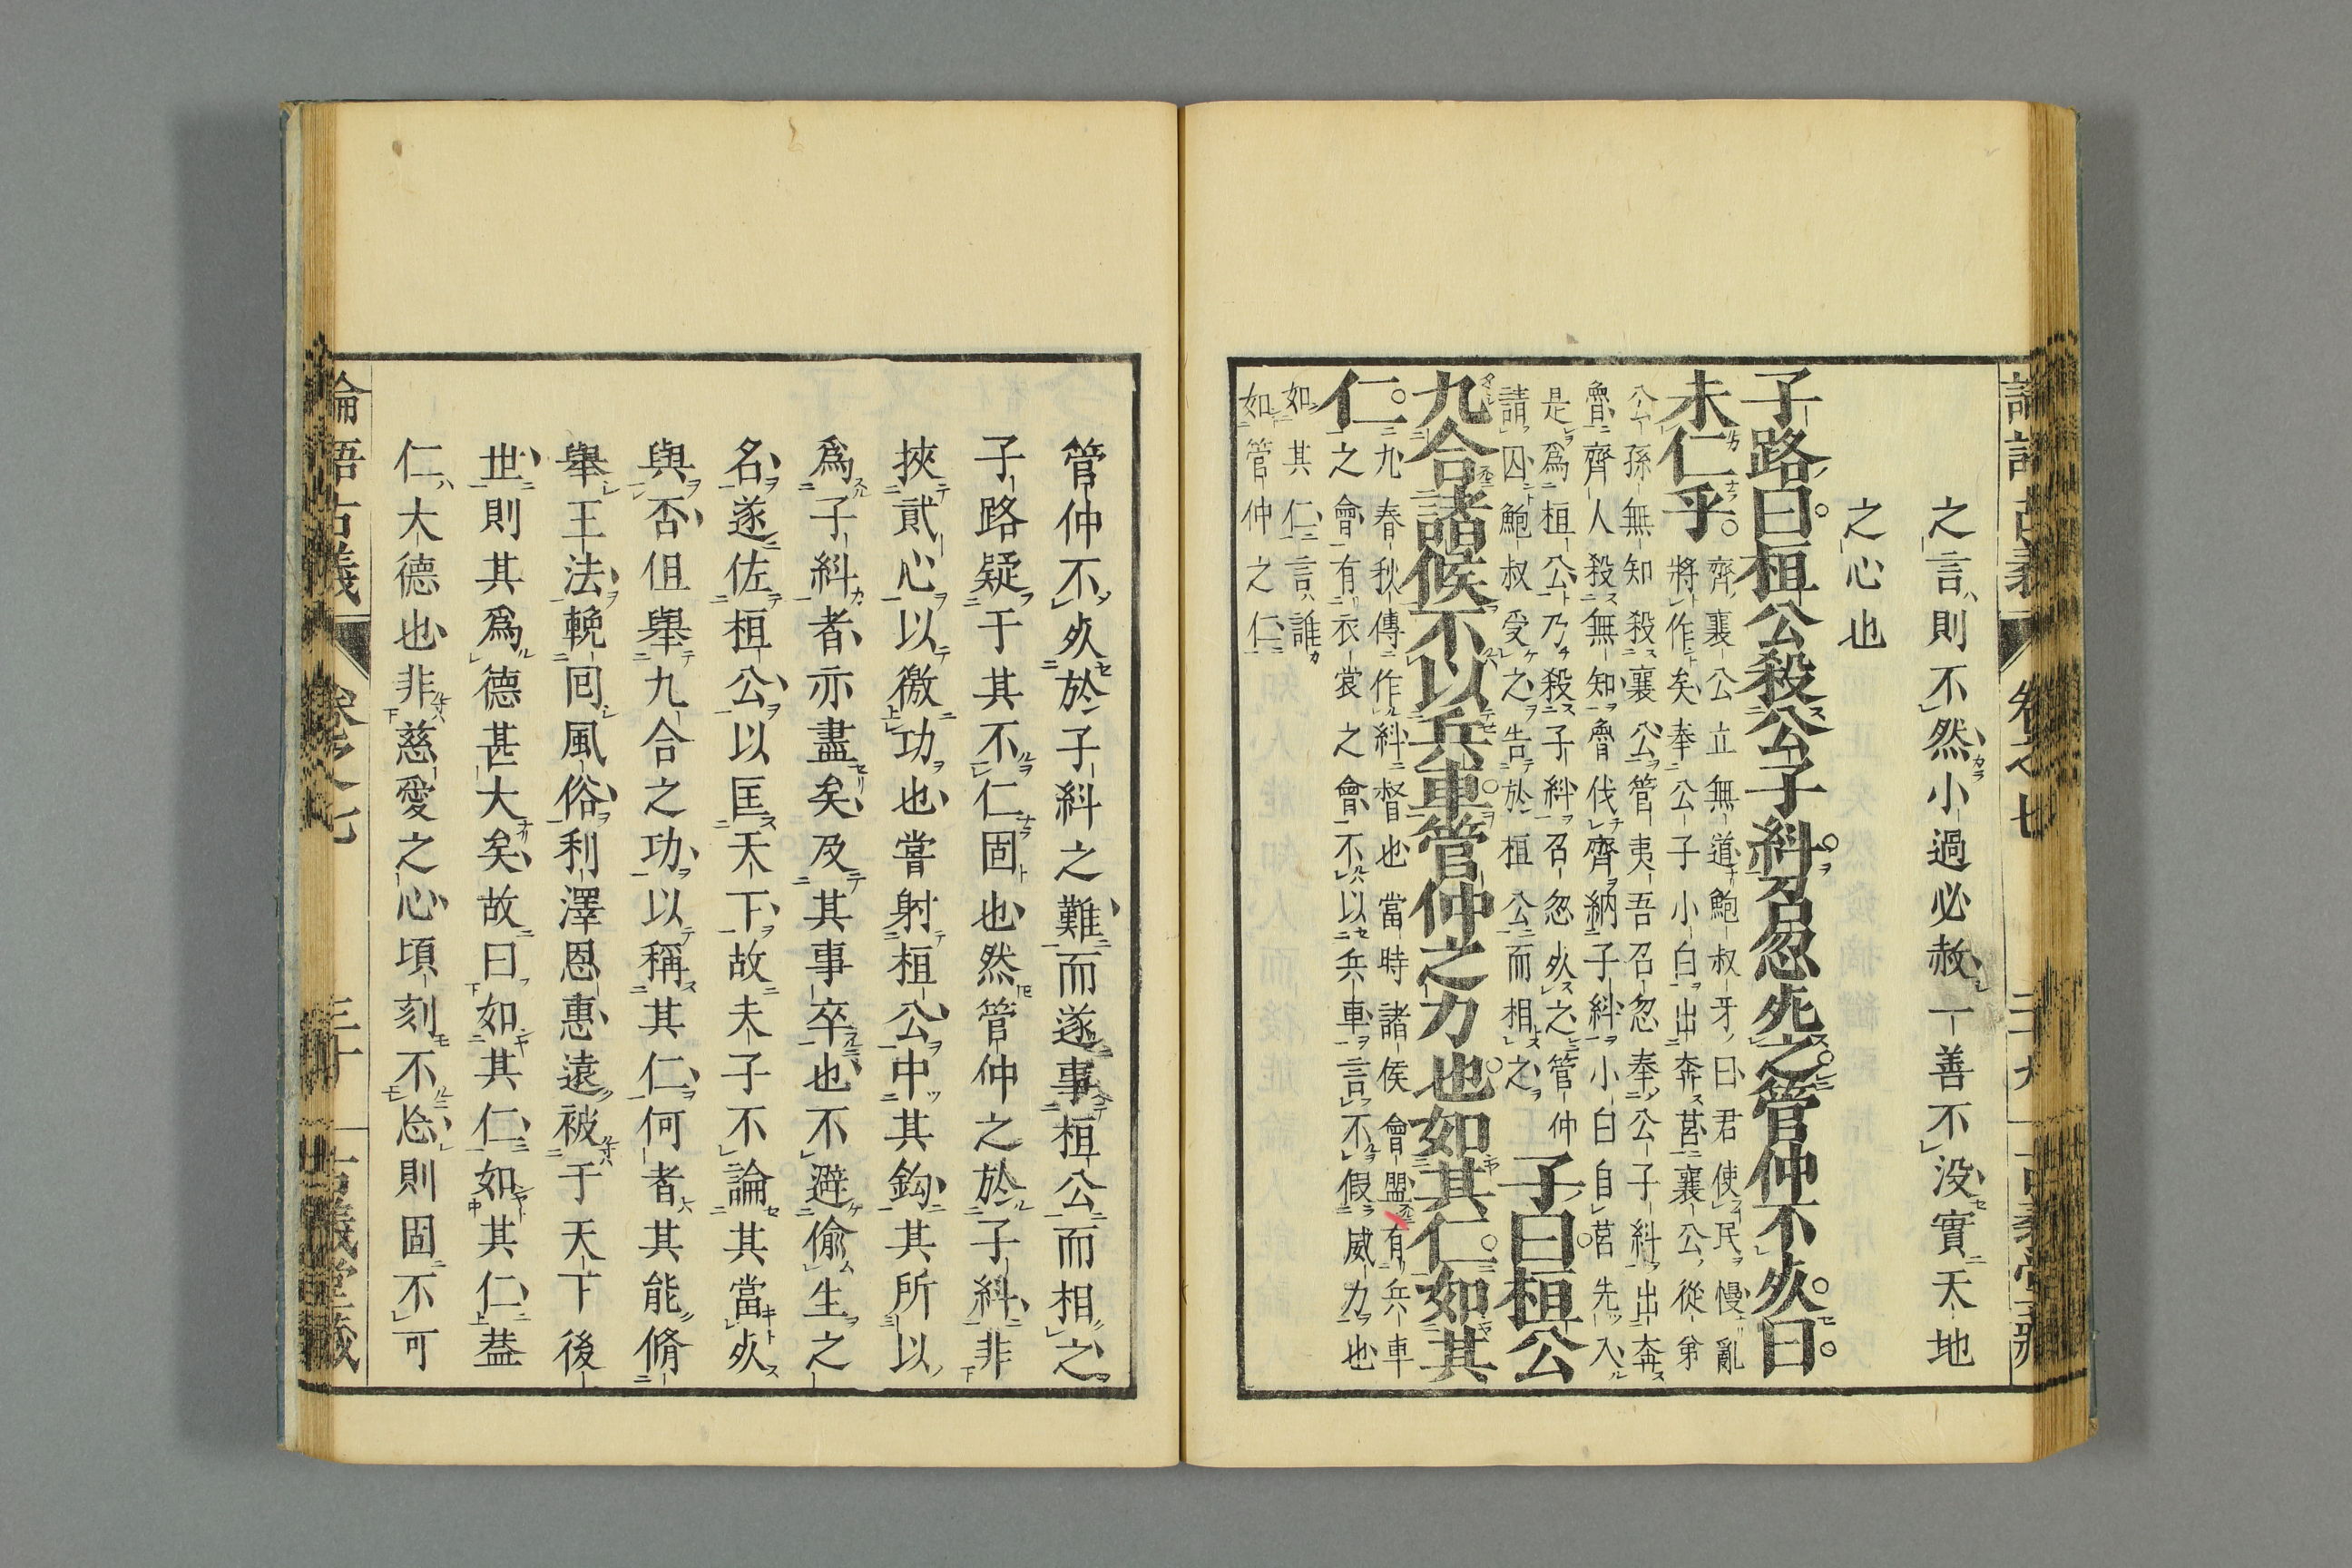 論語古義 卷之七 二十九 古義堂藏
之言則不然小過必赦一善不没實天地
之心也
子路曰桓公殺公子糾召忽死之管仲不死曰
未仁乎
齊襄公立無道鮑叔牙曰君使民慢亂
將作矣奉公子小白出奔莒襄公從弟
公孫無知殺襄公管夷吾召忽奉公子糾出奔
魯齊人殺無知魯伐齊納子糾小白自莒先入
是爲桓公乃殺子糾召忽死之管仲
請囚鮑叔受之告於桓公而相之
子曰桓公
九合諸侯不以兵車管仲之力也如其仁如其
仁
九春秋傳作糾督也當時諸侯會盟有兵車
之會有衣裳之會不以兵車言不假威力也
如其仁言誰
如管仲之仁
管仲不死於子糾之難而遂事桓公而相之
子路疑于其不仁固也然管仲之於子糾非
挾貳心以徼功也嘗射桓公中其鈎其所以
爲子糾者亦盡矣及其事卒也不避偸生之
名遂佐桓公以匡天下故夫子不論其當死
與否但舉九合之功以稱其仁何者其能脩
舉王法輓回風俗利澤恩惠遠被于天下後
世則其爲德甚大矣故曰如其仁如其仁葢
仁大德也非慈愛之心頃刻不忘則固不可
論語古義 卷之七 三十 古義堂藏